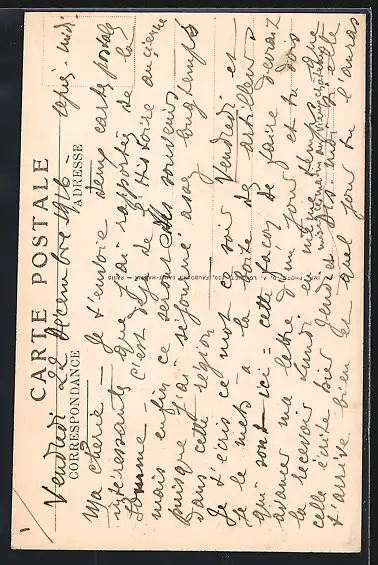 CARTE POSTALE
Vendredi 22 Décembre 1916 - après-midi
CORRESPONDANCE
ADRESSE
Ma chérie - Je t'envoie deux cartes postales
intéressantes que j'ai rapportées de la
Somme - c'est déjà de l'Histoire ancienne
mais enfin ce seront des souvenirs
puisque j'ai séjourné assez longtemps
dans cette région
Je t'écris ce mot ce soir Vendredi et
je le mets à la boîte des artilleurs
qui sont ici = cette façon de faire devrait
avancer ma lettre d'un jour et tu dois
la recevoir Lundi en même temps que
celle écrite hier Jeudi - Dis-moi si elle
t'arrive bien et quel jour tu l'auras